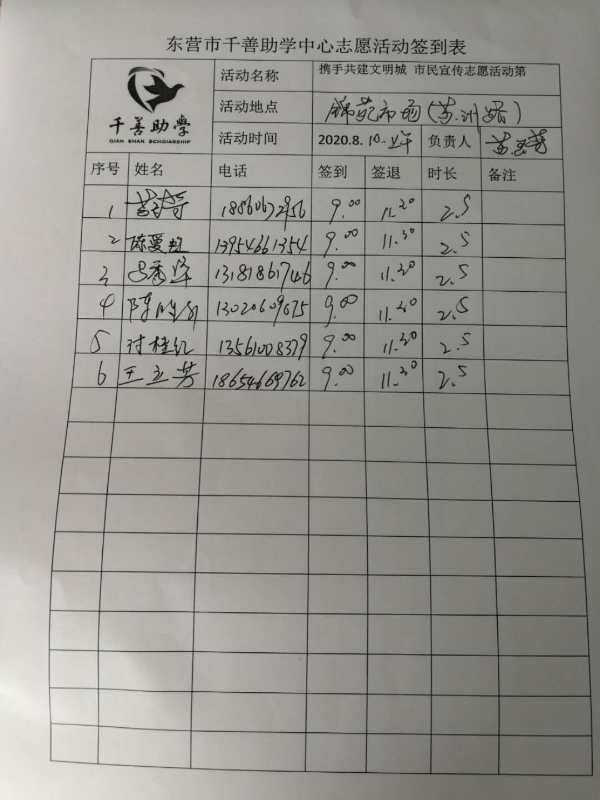 东营市千善助学中心志愿活动签到表
千善助学
QIAN SHAN SCHOLARSHIP
活动名称 携手共建文明城 市民宣传志愿活动第
活动地点 锦苑市场(苏州路)
活动时间 2020.8.10.上午 负责人
序号 姓名 电话 签到 签退 时长 备注
1 18860672956 9.00 11.30 2.5
2 陈爱 13954661354 9.00 11.30 2.5
3 13181861746 9.00 11.30 2.5
4 陈 13020609675 9.00 11.30 2.5
5 付桂红 13561008379 9.00 11.30 2.5
6 王立芳 18654669762 9.00 11.30 2.5